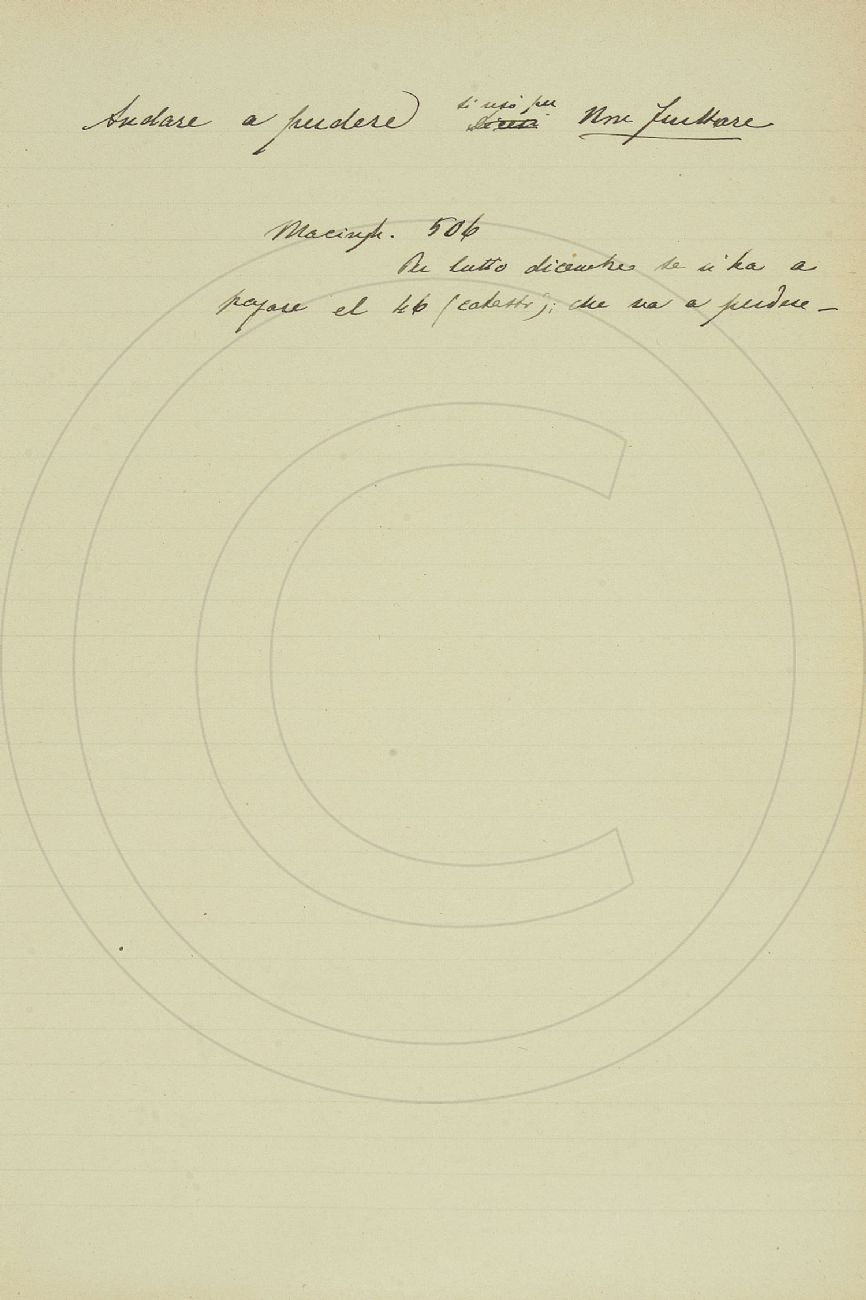 Andare a perdere) si usò per Non fruttare
Macingh. 506
Per tutto dicembre se n'ha a
pagare el 46 (catasto); che va a perdere –